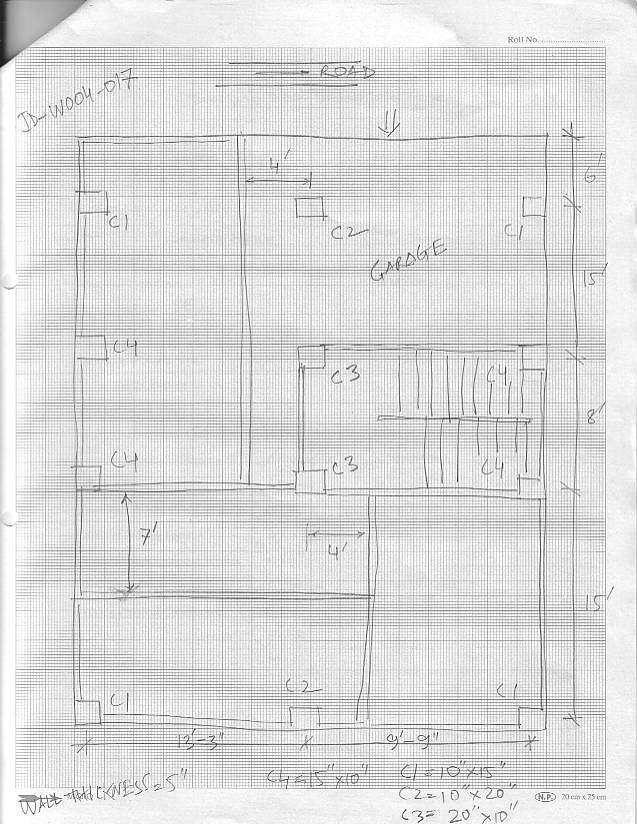 Roll No.
ROAD
JD-W004-017
4'
6'
C1
C2
C1
GARAGE
15'
C4
C3
C4
8'
C4
C3
C4
7'
4'
15'
C1
C2
C1
13'-3"
9'-9"
WALL THICKNESS = 5"
C4=15"x10"
C1=10"x15"
C2=10"x20"
C3=20"x10"
N.P. 20 cm x 25 cm